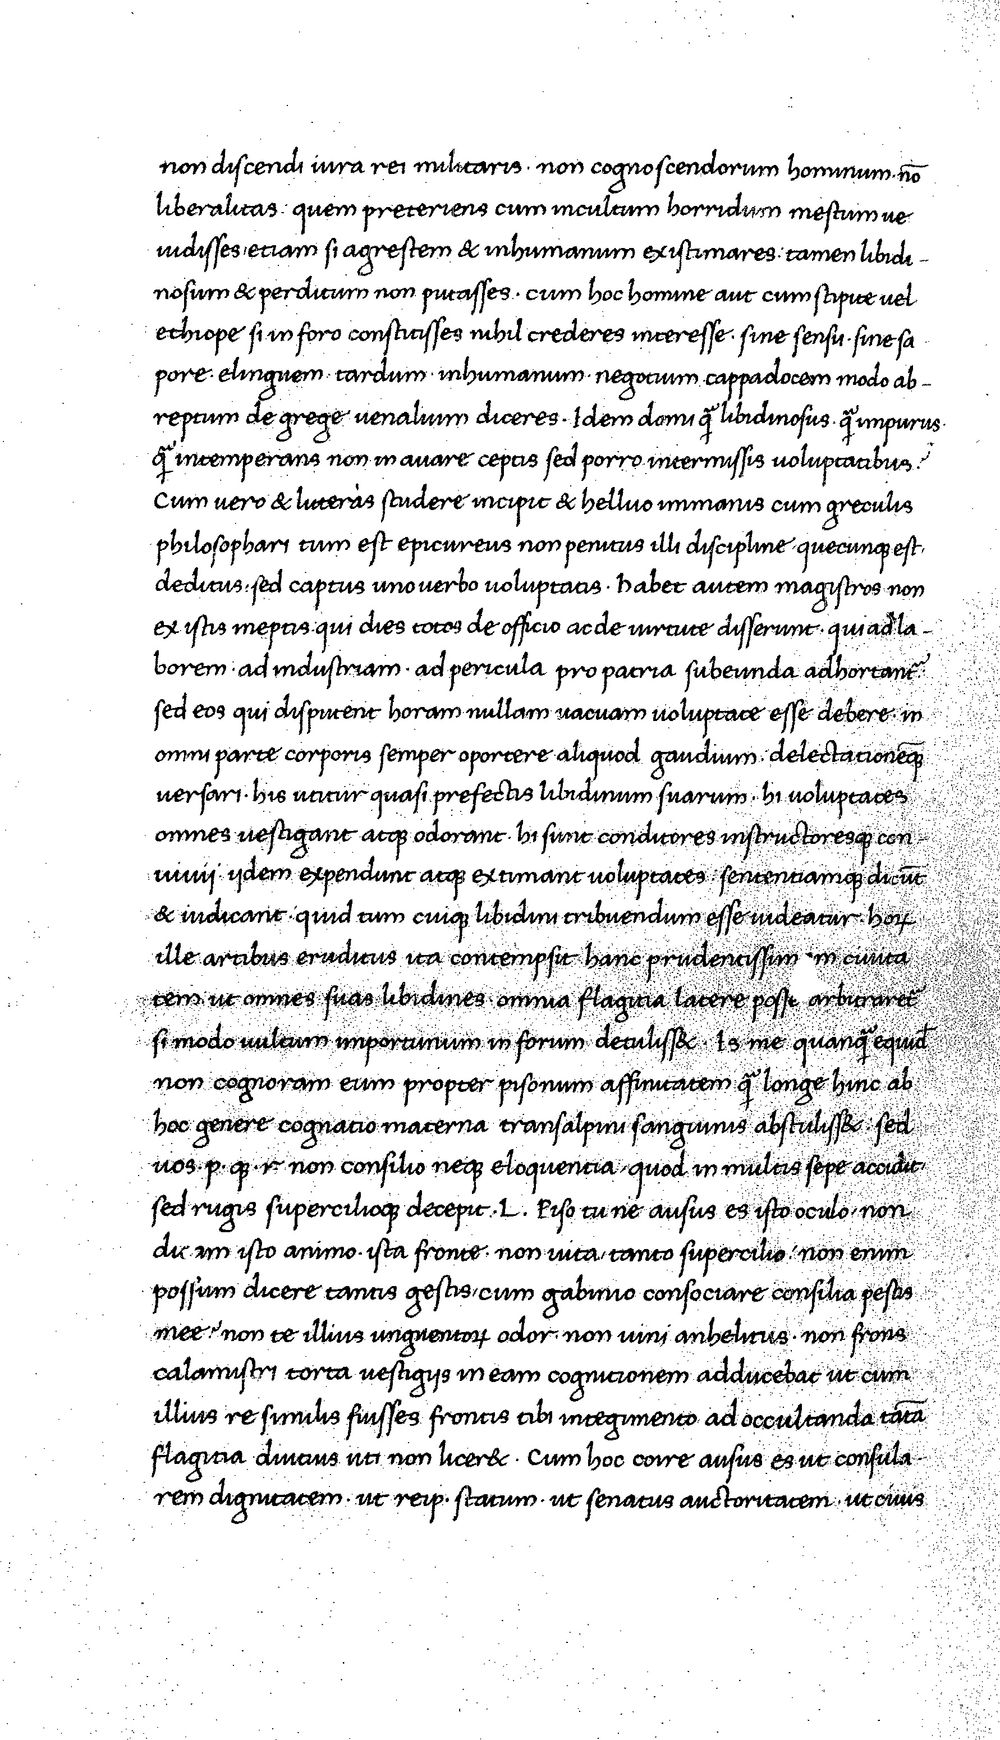 non discendi iura rei militaris · non cognoscendorum hominum · nō
liberalitas · quem preteriens cum incultum horridum mestum ue
uidisses · etiam si agrestem & inhumanum existimares · tamen libidi-
nosum & perditum non putasses · cum hoc homine aut cum stipite uel
ethiope si in foro constitisses nihil crederes interesse · sine sensu · sine sa
pore · elinguem · tardum · inhumanum · negotium cappadocem modo ab-
reptum de grege uenalium diceres · Idem domi q̄ libidinosus · q̄ impurus ·
q̄ intemperans non in auare ceptis sed porro intermissis uoluptatibus ?
Cum uero & litteras studere incipit & helluo immanis cum greculis
philosophari tum est epicureus non penitus illi discipline quecunq; est ·
deditus · sed captus uno uerbo uoluptatis · habet autem magistros non
ex istis ineptis qui dies totos de officio ac de uirtute disserunt · qui ad la-
borem · ad industriam · ad pericula pro patria subeunda adhortant̄
sed eos qui disputent horam nullam uacuam uoluptate esse debere · in
omni parte corporis semper oportere aliquod gaudium · delectationeq̄;
uersari · his utitur quasi prefectis libidinum suarum · hi uoluptates
omnes uestigant atq; odorant · hi sunt conditores instructoresq; con-
uiuij · ijdem expendunt atq; extimant uoluptates · sententiamq; dicūt
& iudicant · quid tum cuiq; libidini tribuendum esse uideatur · hoꝝ
ille artibus eruditus ita contempsit hanc prudentissim in ciuita
tem · ut omnes suas libidines · omnia flagitia latere posse arbitraret̄
si modo uultum importunum in forum detuliss& · Is me quanq̄ equid̄
non cognoram eum propter pisonum affinitatem q̄ longe hinc ab
hoc genere cognatio materna transalpini sanguinis abstuliss& · sed
uos · p · q; · r · non consilio neq; eloquentia · quod in multis sepe accidit ·
sed rugis supercilioq; decepit · L . Piso tu ne ausus es isto oculo · non
dic am isto animo · ista fronte · non uita · tanto supercilio · non enim
possum dicere tantis gestis · cum gabinio consociare consilia pestis
mee ? non te illius unguentoꝝ odor · non uini anhelitus · non frons
calamistri torta uestigijs in eam cognitionem adducebat ut cum
illius re similis fuisses frontis tibi integimento ad occultanda tātā
flagitia diutius uti non licer& · Cum hoc coire ausus es ut consula-
rem dignitatem · ut reip · statum · ut senatus auctoritatem · ut ciuis